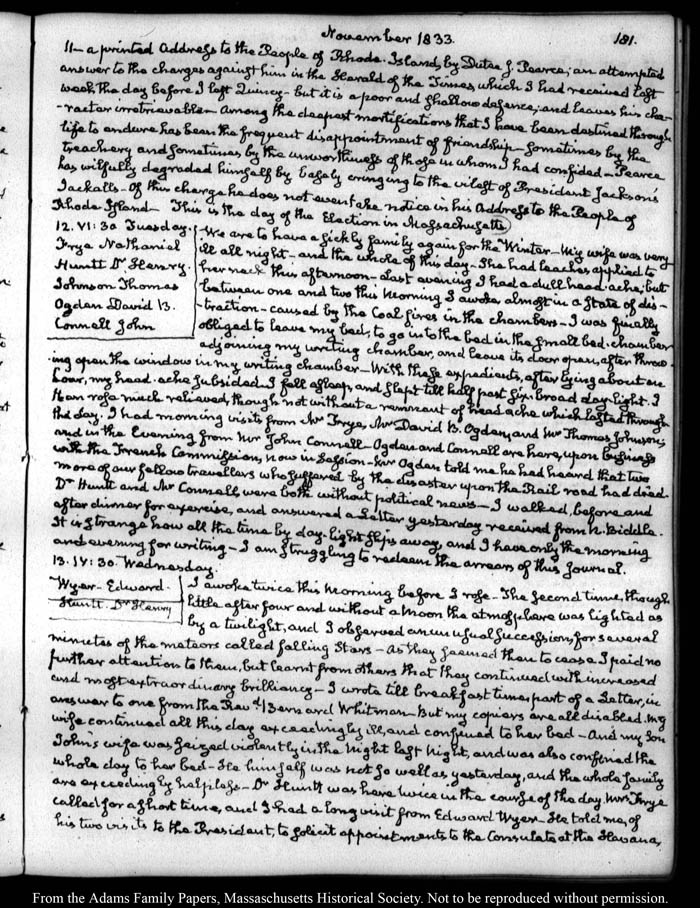 November 1833.
181.
11 — a printed Address to the People of Rhode-Island, by Dutee J. Pearce; an attempted
answer to the charges against him in the Herald of the Times, which I had received last
week, the day before I left Quincy — but it is a poor and shallow defence; and leaves his cha-
-racter irretrievable — Among the deepest mortifications that I have been destined through
life to endure has been the frequent disappointment of friendship — Sometimes by the
treachery and sometimes by the unworthiness of those in whom I had confided — Pearce
has wilfully degraded himself by basely cringing to the vilest of President Jackson's
Jackalls — Of this charge he does not even take notice in his Address to the People of
Rhode Island — This is the day of the Election in Massachusetts
12. VI:30 Tuesday.
Frye Nathaniel
Huntt Dr Henry.
Johnson Thomas
Ogden David B.
Connell John
We are to have a sickly family again for the Winter — My wife was very
ill all night — and the whole of this day — She had leaches applied to
her neck this afternoon — Last evening I had a dull head-ache; but
between one and two this Morning I awoke almost in a state of dis-
-traction — caused by the Coal fires in the chambers — I was finally
obliged to leave my bed, to go into the bed in the small bed-chamber
adjoining my writing chamber, and leave its door open, after throw-
-ing open the window in my writing chamber — With these expedients, after lying about an
hour, my head-ache subsided. I fell asleep, and slept till half past six. broad day-light. I
then rose much relieved, though not without a remnant of head ache which lasted through
the day. I had morning visits from Mr Frye, Mr David B. Ogden, and Mr Thomas Johnson;
and in the Evening from Mr John Connell — Ogden and Connell are here, upon business
with the French Commission, now in Session — Mr Ogden told me he had heard that two
more of our fellow travellers who suffered by the disaster upon the Rail road had died.
Dr Huntt and Mr Connell, were both without political news — I walked, before and
after dinner for exercise, and answered a Letter yesterday received from N. Biddle.
It is strange how all the time by day-light slips away, and I have only the morning
and evening for writing — I am struggling to redeem the arrears of this Journal.
13. IV:30. Wednesday.
Wyer — Edward.
Huntt. Dr Henry
I awoke twice this Morning before I rose — The second time, though
little after four and without a moon the atmosphere was lighted as
by a twilight, and I observed an unusual succession, for several
minutes of the meteors called falling Stars — As they seemed then to cease I paid no
further attention to them, but learnt from others that they continued with increased
and most extraordinary brilliancy — I wrote till breakfast time, part of a Letter, in
answer to one from the Revd Bernard Whitman — But my copiers are all disabled. My
wife continued all this day exceedingly ill, and confined to her bed — And my Son
John's wife was seized violently in the Night last Night, and was also confined the
whole day to her bed — He himself was not so well as yesterday, and the whole family
are exceedingly helpless — Dr Huntt was here twice in the course of the day. Mrs Frye
called for a short time, and I had a long visit from Edward Wyer — He told me, of
his two visits to the President, to solicit appointments to the Consulates at the Havana,
From the Adams Family Papers, Massachusetts Historical Society. Not to be reproduced without permission.